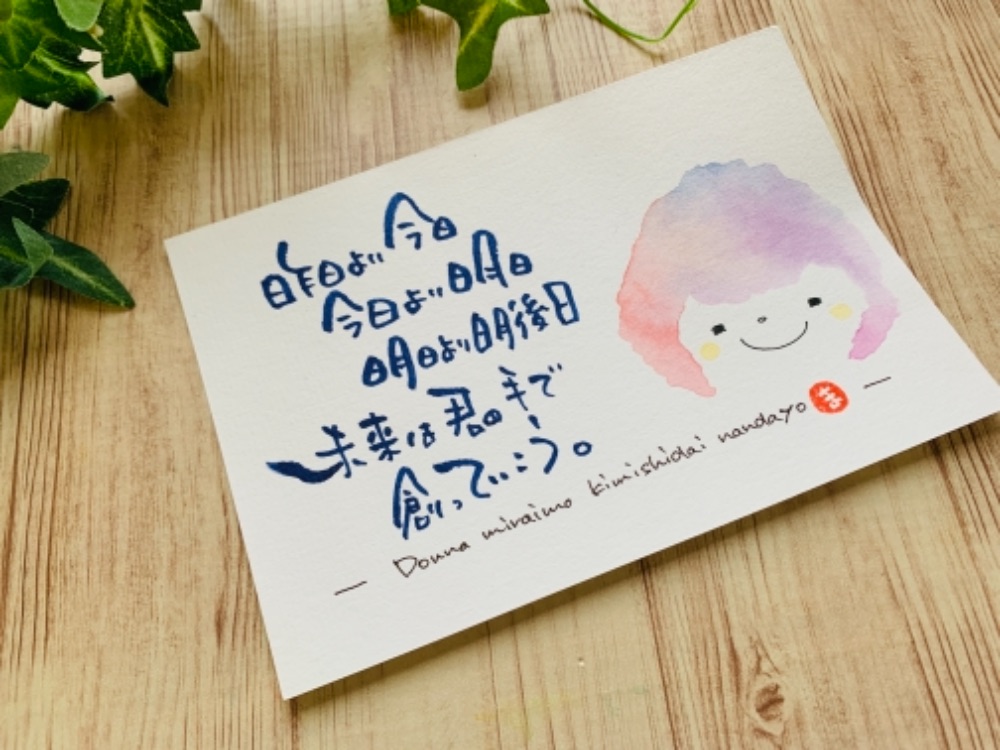 昨日より今日
今日より明日
明日より明後日
未来は君の手で
創っていこう。
— Donna miraimo kimishidai nandayo —